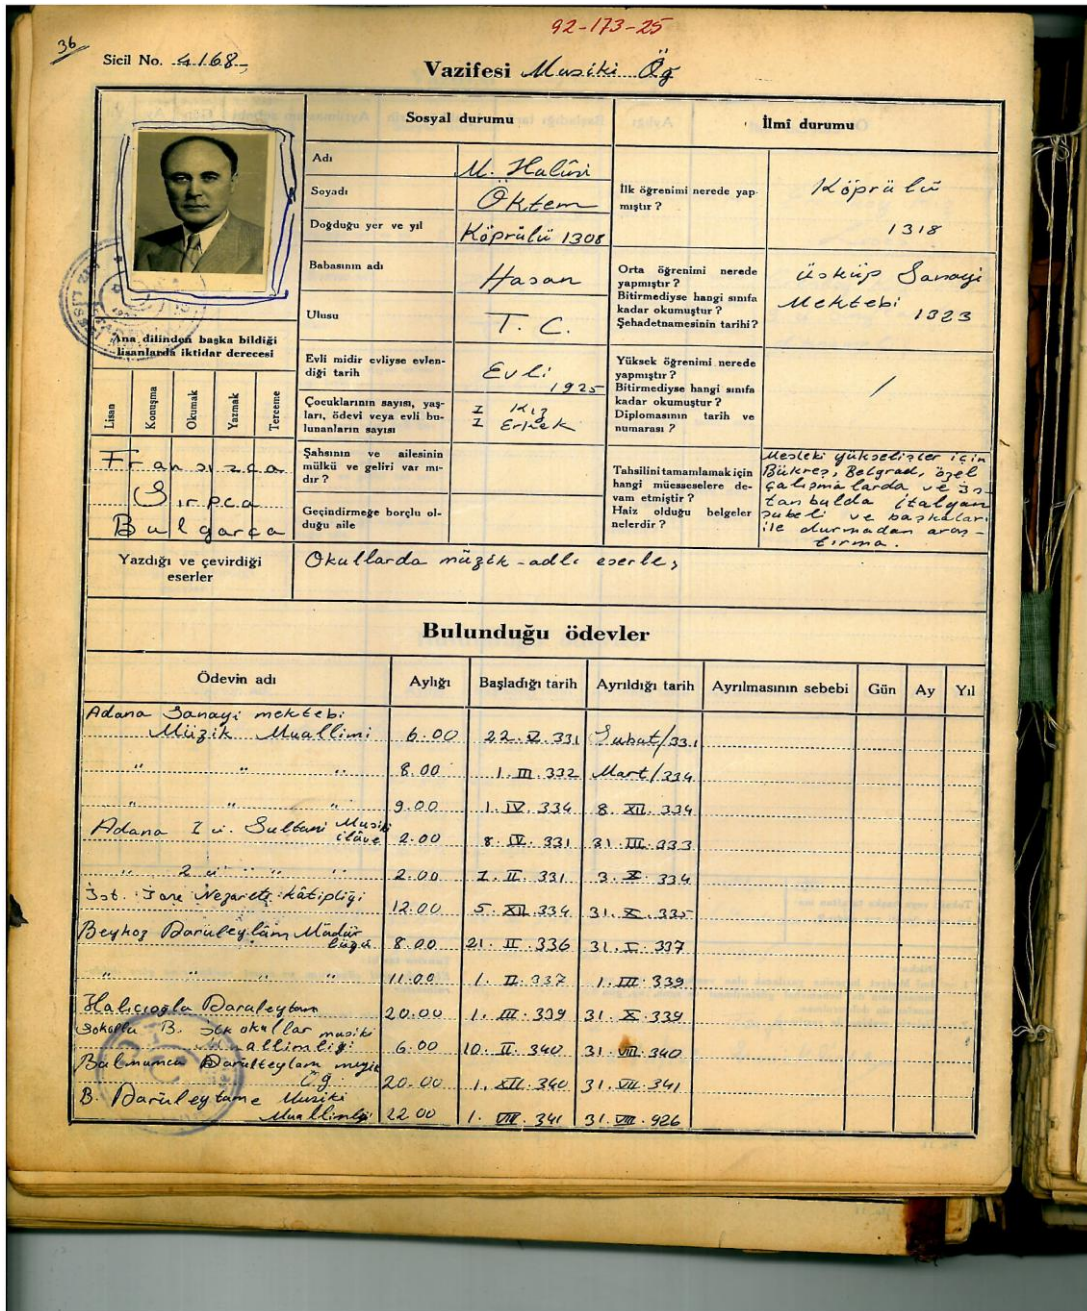 92-173-25
36
Sicil No. 4168
Vazifesi Musiki Öğ
Sosyal durumu
İlmî durumu
Adı
M. Halûsi
Soyadı
Öktem
Doğduğu yer ve yıl
Köprülü 1308
Babasının adı
Hasan
Ulusu
T. C.
Evli midir evliyse evlen-
diği tarih
Evli
1925
Çocuklarının sayısı, yaş-
ları, ödevi veya evli bu-
lunanların sayısı
2 Kız
2 Erkek
Şahsının ve ailesinin
mülkü ve geliri var mı-
dır ?
Geçindirmeğe borçlu ol-
duğu aile
İlk öğrenimi nerede yap-
mıştır ?
Köprülü
1318
Orta öğrenimi nerede
yapmıştır ?
Bitirmediyse hangi sınıfa
kadar okumuştur ?
Şehadetnamesinin tarihi ?
Üsküp Sanayi
Mektebi 1323
Yüksek öğrenimi nerede
yapmıştır ?
Bitirmediyse hangi sınıfa
kadar okumuştur ?
Diplomasının tarih ve
numarası ?
/
Tahsilini tamamlamak için
hangi müesseselere de-
vam etmiştir ?
Haiz olduğu belgeler
nelerdir ?
Mesleki yükselişler için
Bükreş, Belgrad, özel
çalışmalarda ve İs-
tanbulda italyan
ve başkaları
ile durmadan araş-
tırma.
Ana dilinden başka bildiği
lisanlarda iktidar derecesi
Lisan
Konuşma
Okumak
Yazmak
Terceme
Fransızca
Sırpca
Bulgarca
Yazdığı ve çevirdiği
eserler
Okullarda müzik - adlı eserler
Bulunduğu ödevler
Ödevin adı
Aylığı
Başladığı tarih
Ayrıldığı tarih
Ayrılmasının sebebi
Gün
Ay
Yıl
Adana Sanayi mektebi
Müzik Muallimi 6.00 22. V. 331 Şubat/331
" " " 8.00 1. III. 332 Mart/334
" " " 9.00 1. IV. 334 8. XII. 334
Adana Sultani Musiki
ilâve 2.00 8. IV. 331 31. III. 333
" " " 2.00 II. 331 3. X. 334
İst. İaşe Nezareti Kâtipliği 12.00 5. XII. 334 31. X. 335
Beykoz Darüleytâm Müdür
lüğü 8.00 21. II. 336 31. I. 337
" " " " 11.00 1. II. 337 1. III. 339
Halıcıoğlu Daruleytam 20.00 1. III. 339 31. X. 339
B. okullar musiki
allimliği 6.00 10. II. 340 31. VIII. 340
Balmumcu Darülteytam
Öğ. 20.00 1. XII. 340 31. VIII. 341
B. Darüleytame Musiki
Muallimliği 22.00 1. VIII. 341 31. VIII. 926